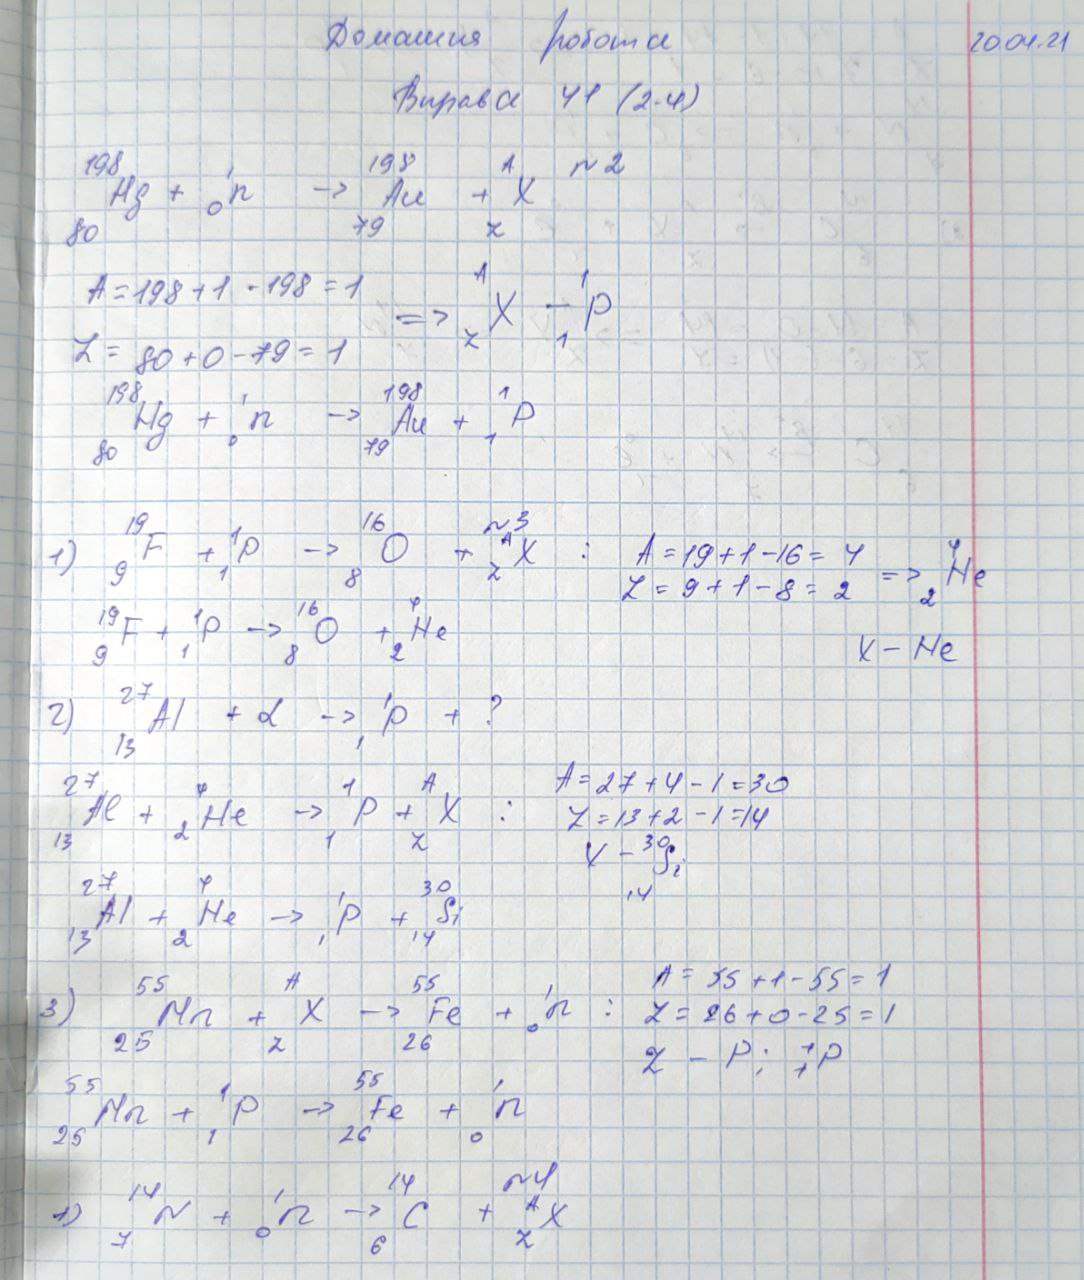 Домашня робота 20.04.21
Вправа 41 (2-4)
№2
¹⁹⁸₈₀Hg + ¹₀n → ¹⁹⁸₇₉Au + ᴬ_Z X
A = 198 + 1 - 198 = 1
=> ᴬ_Z X - ¹₁P
Z = 80 + 0 - 79 = 1
¹⁹⁸₈₀Hg + ¹₀n → ¹⁹⁸₇₉Au + ¹₁P
№3
1) ¹⁹₉F + ¹₁P → ¹⁶₈O + ᴬ_Z X : A = 19 + 1 - 16 = 4
Z = 9 + 1 - 8 = 2 => ⁴₂He
¹⁹₉F + ¹₁P → ¹⁶₈O + ⁴₂He
X - He
2) ²⁷₁₃Al + α → ¹₁P + ?
²⁷₁₃Al + ⁴₂He → ¹₁P + ᴬ_Z X : A = 27 + 4 - 1 = 30
Z = 13 + 2 - 1 = 14
X - ³⁰₁₄Si
²⁷₁₃Al + ⁴₂He → ¹₁P + ³⁰₁₄Si
3) ⁵⁵₂₅Mn + ᴬ_Z X → ⁵⁵₂₆Fe + ¹₀n : A = 55 + 1 - 55 = 1
Z = 26 + 0 - 25 = 1
Z - P; ¹₁P
⁵⁵₂₅Mn + ¹₁P → ⁵⁵₂₆Fe + ¹₀n
№4
1) ¹⁴₇N + ¹₀n → ¹⁴₆C + ᴬ_Z X